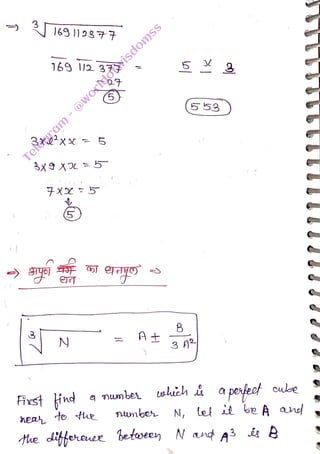 ⇒ ∛169112377
169 112 377 = 5 x 3
27
5
553
3×l²×x = 5
3×9×x = 5
7×x = 5
↓
5
⇒ अपूर्ण घन का घनमूल ⇒
∛N = A ± B/3A²
First find a number which is a perfect cube
near to the number N, let it be A and
the difference between N and A³ is B
Telegram - @worldofwisdomss